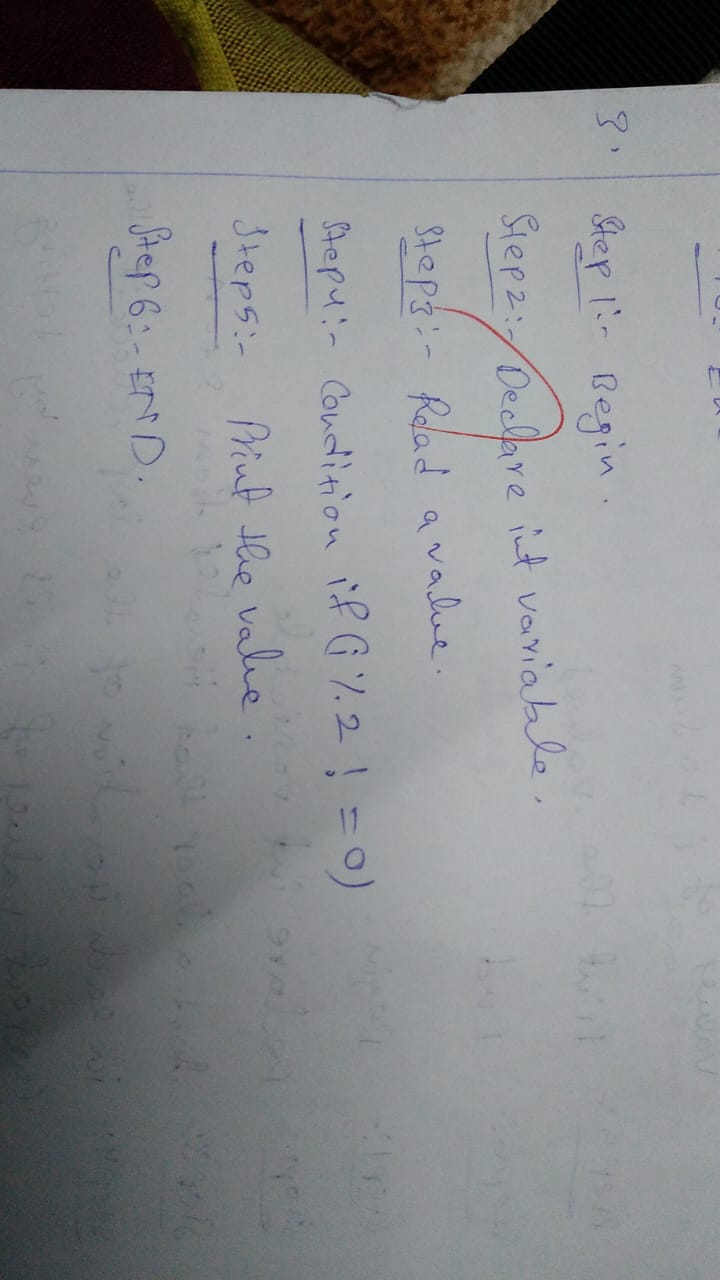 3.
Step 1:- Begin.
Step2:- Declare int variable.
Step3:- Read a value.
Step4:- Condition if (i%2!=0)
Step5:- Print the value.
Step 6:- END.